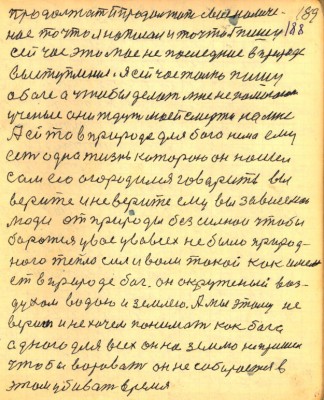 189
продолжат и продолжат
ное то что я написал и то что я пишу 188
сейчас это мое не последнее в природе
выступления. я сейчас только пишу
о боге а чтобы делат мне не
ученые они ждут моей смерти
А ест в природе для бога
ест одна жизнь которою он нашел
сам его огородимся говарить вы
верите и не верите ему вы зависемои
люди от природы без силнои чтобы
боротся у вас у вовсех не было природ-
ного тепло сил и воли такой как имеем
ест в природе бог. он окруженый воз-
духом водою и землею. А мы этому не
верим и не хочем понимат как бога
одного для всех он на землю
чтобы вороват он не собирается в
этом убиват время